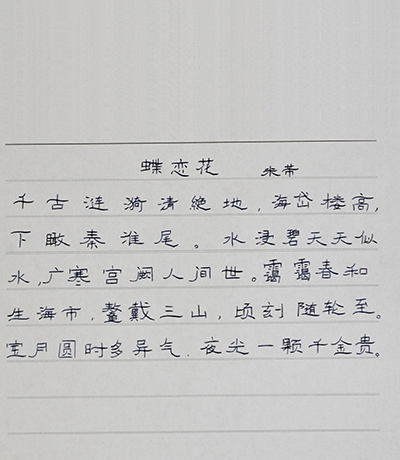 蝶恋花 朱芾
千古涟漪清绝地,海岱楼高,
下瞰秦淮尾。水浸碧天天似
水,广寒宫阙人间世。霭霭春和
生海市,鳌戴三山,顷刻随轮至。
宝月圆时多异气,夜光一颗千金贵。